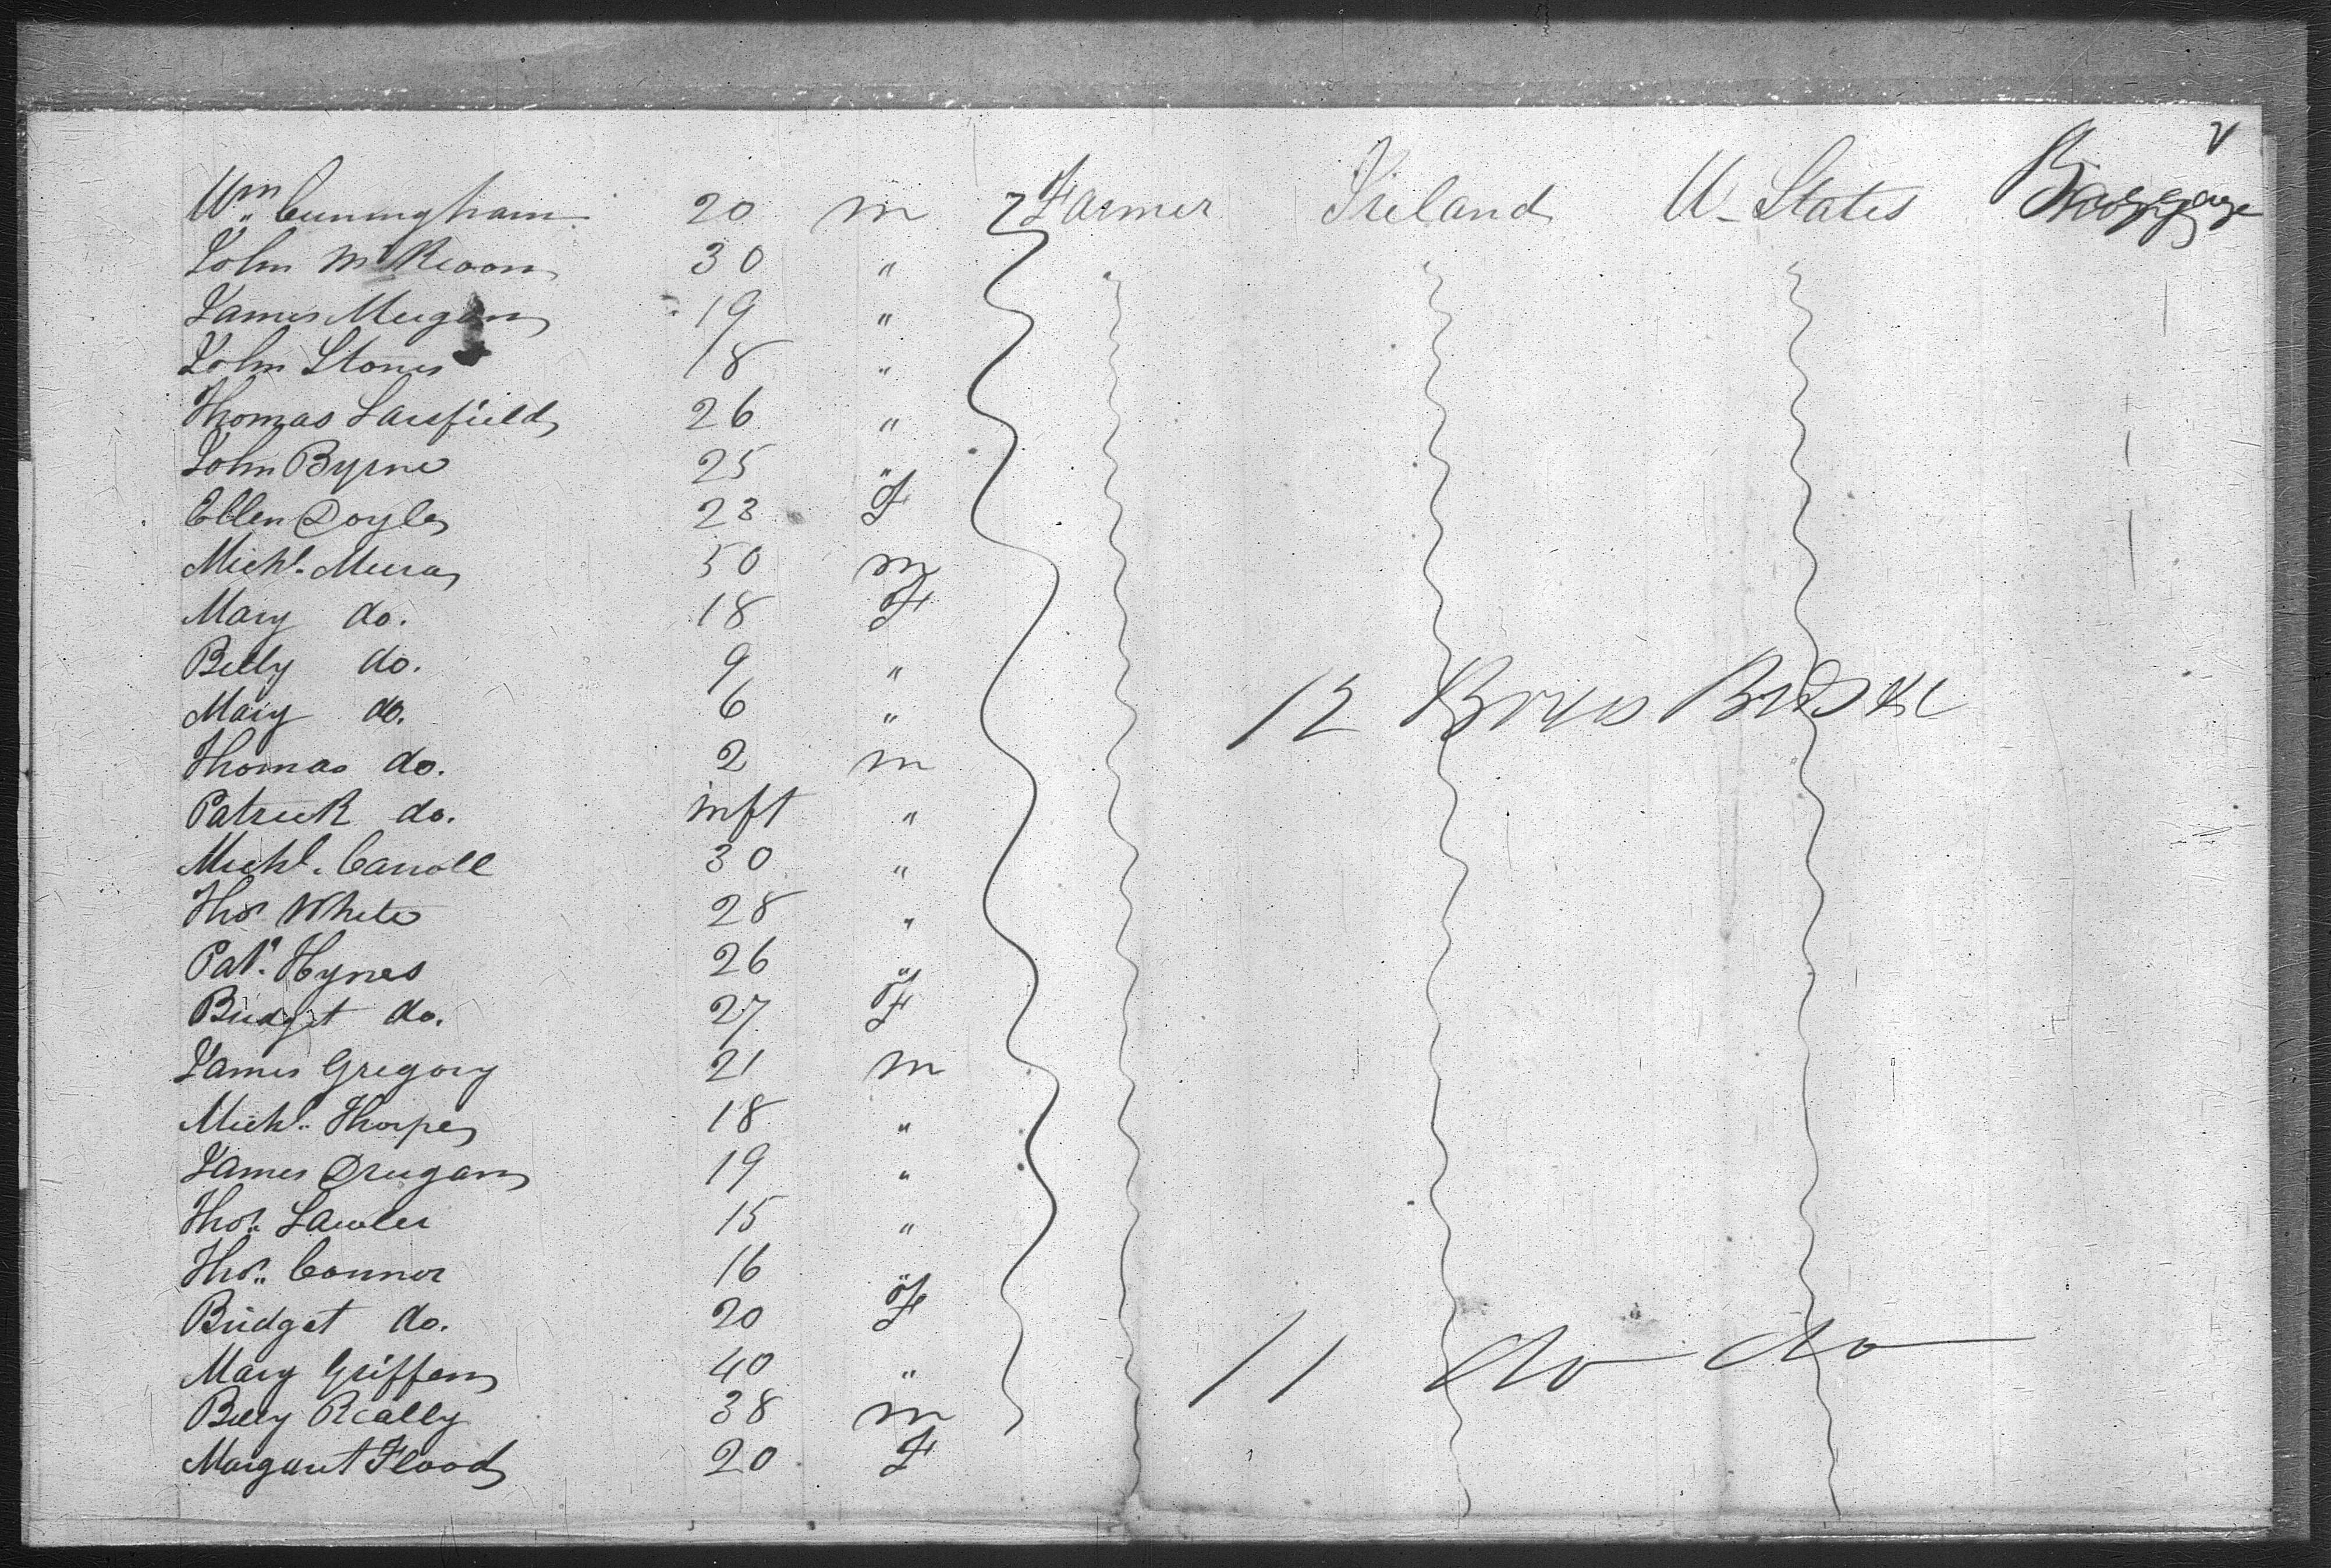 Wm. Cuningham 20 m Farmer Ireland U-States Baggage
John McKeoon 30 "
James Meegan 19 "
John Stones 18 "
Thomas Sarsfield 26 "
John Byrne 25 "
Ellen Doyle 23 F
Michl. Murray 50 m
Mary do. 18 F
Betty do. 9 "
Mary do. 6 " 12 Boxes Beds &c
Thomas do. 2 m
Patrick do. inft "
Michl. Carroll 30 "
Thos. White 28 "
Pat. Hynes 26 "
Bridget do. 27 F
James Gregory 21 m
Michl. Thorpe 18 "
James Drugan 19 "
Thos. Lawler 15 "
Thos. Conner 16 "
Bridget do. 20 F
Mary Griffen 40 " 11 do do
Billy Really 38 m
Margaret Flood 20 F